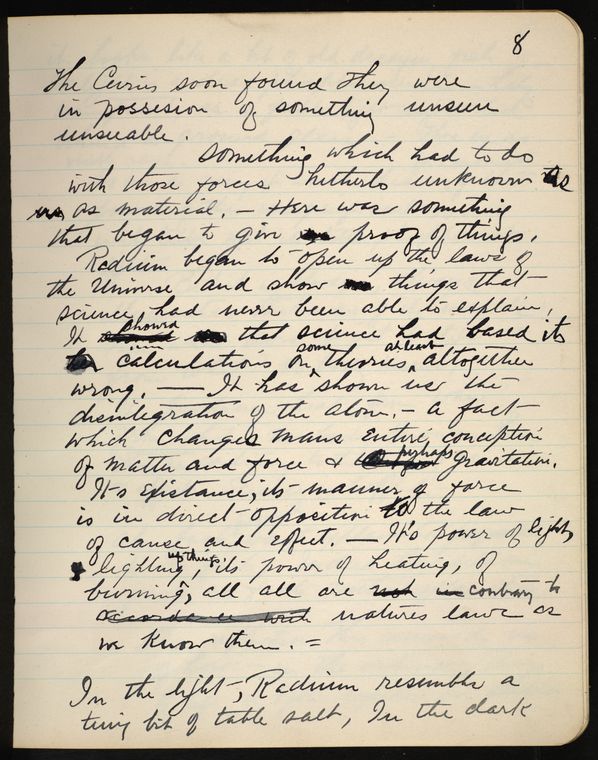 8
The Curies soon found they were
in possesion of something unseen
unseeable.
Something which had to do
with those forces hetherto unknown as
as material. – Here was something
that began to give proof of things.
Radium began to open up the laws of
the Universe and show things that
science had never been able to explain,
It showed that science had based its
calculations on some theories, at least altogether
wrong. — It has shown us the
disintegration of the atom. – a fact
which changes mans entire conception
of matter and force & perhaps gravitation.
It's existance; its manner of force
is in direct opposition to the law
of cause and effect. — It's power of light,
lighting up things, its power of heating, of
burning, all all are contrary to
accordance with natures laws as
we know them. =
In the light, Radium resembles a
tiny bit of table salt, In the dark